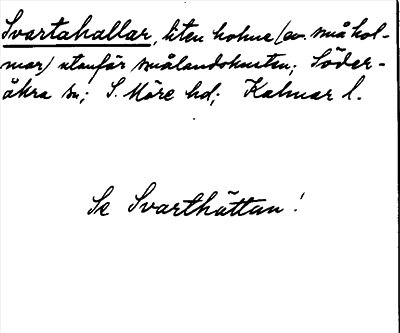 Svartahallar, liten holme (ev. små hol-
mar) utanför smålandskusten; Söder-
åkra sn; S. Möre hd; Kalmar l.
Se Svarthättan!